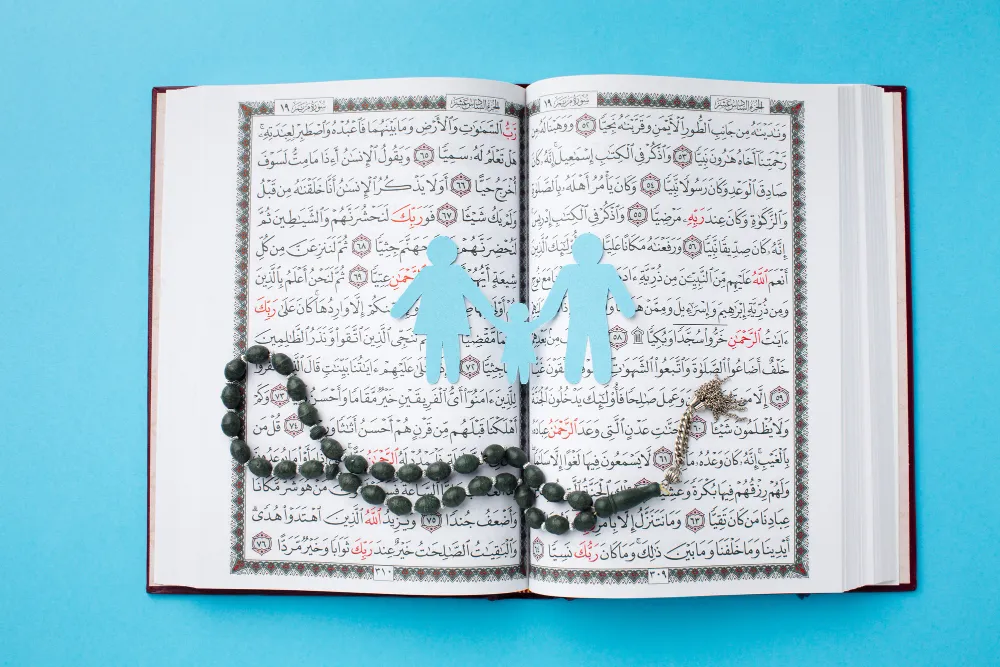 الجزء السادس عشر
سورة مريم ١٩
وَنَٰدَيْنَٰهُ مِن جَانِبِ ٱلطُّورِ ٱلْأَيْمَنِ وَقَرَّبْنَٰهُ نَجِيًّا ٥٢ وَوَهَبْنَا لَهُۥ مِن
رَّحْمَتِنَآ أَخَاهُ هَٰرُونَ نَبِيًّا ٥٣ وَٱذْكُرْ فِى ٱلْكِتَٰبِ إِسْمَٰعِيلَ إِنَّهُۥ كَانَ
صَادِقَ ٱلْوَعْدِ وَكَانَ رَسُولًا نَّبِيًّا ٥٤ وَكَانَ يَأْمُرُ أَهْلَهُۥ بِٱلصَّلَوٰةِ
وَٱلزَّكَوٰةِ وَكَانَ عِندَ رَبِّهِۦ مَرْضِيًّا ٥٥ وَٱذْكُرْ فِى ٱلْكِتَٰبِ إِدْرِيسَ
إِنَّهُۥ كَانَ صِدِّيقًا نَّبِيًّا ٥٦ وَرَفَعْنَٰهُ مَكَانًا عَلِيًّا ٱلَّذِينَ
أَنْعَمَ ٱللَّهُ عَلَيْهِم مِّنَ ٱلنَّبِيِّۦنَ مِن ذُرِّيَّةِ ءَادَمَ نُوحٍ
وَمِن ذُرِّيَّةِ إِبْرَٰهِيمَ وَإِسْرَٰٓءِيلَ وَمِمَّنْ
ءَايَٰتُ ٱلرَّحْمَٰنِ خَرُّوا۟ سُجَّدًا وَبُكِيًّا ۩ ٥٨ مِنۢ بَعْدِهِمْ
خَلْفٌ أَضَاعُوا۟ ٱلصَّلَوٰةَ وَٱتَّبَعُوا۟ ٱلشَّهَوَٰتِ يَلْقَوْنَ غَيًّا
٥٩ إِلَّا مَن وَعَمِلَ صَٰلِحًا فَأُو۟لَٰٓئِكَ يَدْخُلُونَ ٱلْجَنَّةَ
وَلَا يُظْلَمُونَ شَيْـًٔا ٦٠ جَنَّٰتِ عَدْنٍ ٱلَّتِى وَعَدَ ٱلرَّحْمَٰنُ عِبَادَهُۥ
بِٱلْغَيْبِ إِنَّهُۥ كَانَ وَعْدُهُۥ ٦١ لَّا يَسْمَعُونَ فِيهَا لَغْوًا إِلَّا سَلَٰمًا
وَلَهُمْ رِزْقُهُمْ فِيهَا بُكْرَةً وَعَشِيًّا ٱلْجَنَّةُ
عِبَادِنَا مَن كَانَ تَقِيًّا ٦٣ وَمَا نَتَنَزَّلُ إِلَّا بِأَمْرِ
أَيْدِينَا وَمَا خَلْفَنَا وَمَا بَيْنَ ذَٰلِكَ وَمَا كَانَ رَبُّكَ نَسِيًّا ٦٤
٣٠٩
الجزء السادس عشر
سورة مريم ١٩
رَّبُّ ٱلسَّمَٰوَٰتِ وَٱلْأَرْضِ وَمَا بَيْنَهُمَا فَٱعْبُدْهُ وَٱصْطَبِرْ لِعِبَٰدَتِهِۦ
هَلْ تَعْلَمُ لَهُۥ سَمِيًّا ٦٥ وَيَقُولُ ٱلْإِنسَٰنُ أَءِذَا مَا مِتُّ لَسَوْفَ
أُخْرَجُ حَيًّا ٦٦ أَوَلَا يَذْكُرُ ٱلْإِنسَٰنُ أَنَّا خَلَقْنَٰهُ مِن قَبْلُ
وَلَمْ يَكُ شَيْـًٔا ٦٧ فَوَرَبِّكَ لَنَحْشُرَنَّهُمْ وَٱلشَّيَٰطِينَ ثُمَّ
لَنُحْضِرَنَّهُمْ جَهَنَّمَ جِثِيًّا ٦٨ ثُمَّ لَنَنزِعَنَّ مِن كُلِّ
شِيعَةٍ أَيُّهُمْ ٱلرَّحْمَٰنِ عِتِيًّا ٦٩ ثُمَّ لَنَحْنُ أَعْلَمُ بِٱلَّذِينَ
هُمْ أَوْلَىٰ مِّنكُمْ إِلَّا وَارِدُهَا كَانَ عَلَىٰ رَبِّكَ
حَتْمًا مَّقْضِيًّا نُنَجِّى ٱلَّذِينَ ٱتَّقَوا۟ وَّنَذَرُ ٱلظَّٰلِمِينَ
فِيهَا جِثِيًّا ٧٢ تُتْلَىٰ عَلَيْهِمْ ءَايَٰتُنَا بَيِّنَٰتٍ قَالَ ٱلَّذِينَ كَفَرُوا۟
لِلَّذِينَ ءَامَنُوٓا۟ أَىُّ ٱلْفَرِيقَيْنِ خَيْرٌ مَّقَامًا وَأَحْسَنُ ٧٣ وَكَمْ
أَهْلَكْنَا قَبْلَهُم مِّن قَرْنٍ هُمْ أَحْسَنُ أَثَٰثًا ٧٤ قُلْ مَن
ٱلرَّحْمَٰنُ
ٱلسَّاعَةَ مَنْ هُوَ شَرٌّ مَّكَانًا
وَأَضْعَفُ جُندًا ٧٥ وَيَزِيدُ ٱللَّهُ ٱلَّذِينَ ٱهْتَدَوْا۟ هُدًى
وَٱلْبَٰقِيَٰتُ ٱلصَّٰلِحَٰتُ خَيْرٌ عِندَ رَبِّكَ ثَوَابًا وَخَيْرٌ مَّرَدًّا ٧٦
٣١٠